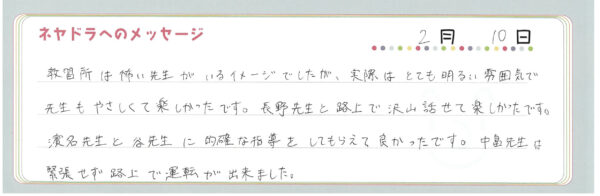 ネヤドラへのメッセージ
2月 10日
教習所は怖い先生がいるイメージでしたが、実際はとても明るい雰囲気で
先生もやさしくて楽しかったです。長野先生と路上で沢山話せて楽しかったです。
濱名先生と谷先生に的確な指導をしてもらえて良かったです。中畠先生は
緊張せず路上で運転が出来ました。